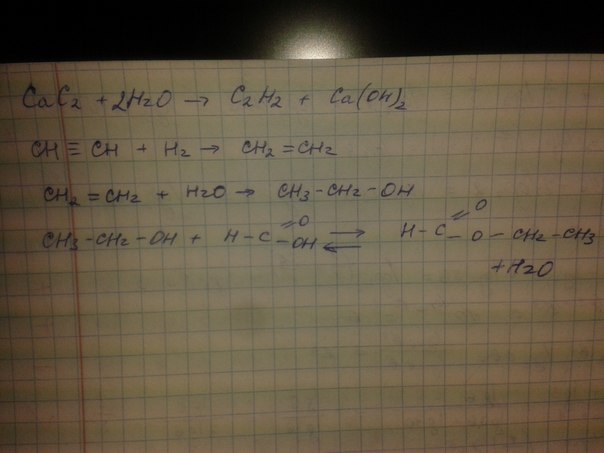 CaC2 + 2H2O → C2H2 + Ca(OH)2
CH ≡ CH + H2 → CH2 = CH2
CH2 = CH2 + H2O → CH3 - CH2 - OH
CH3 - CH2 - OH + H - C =O - OH ⇄ H - C =O - O - CH2 - CH3
+ H2O